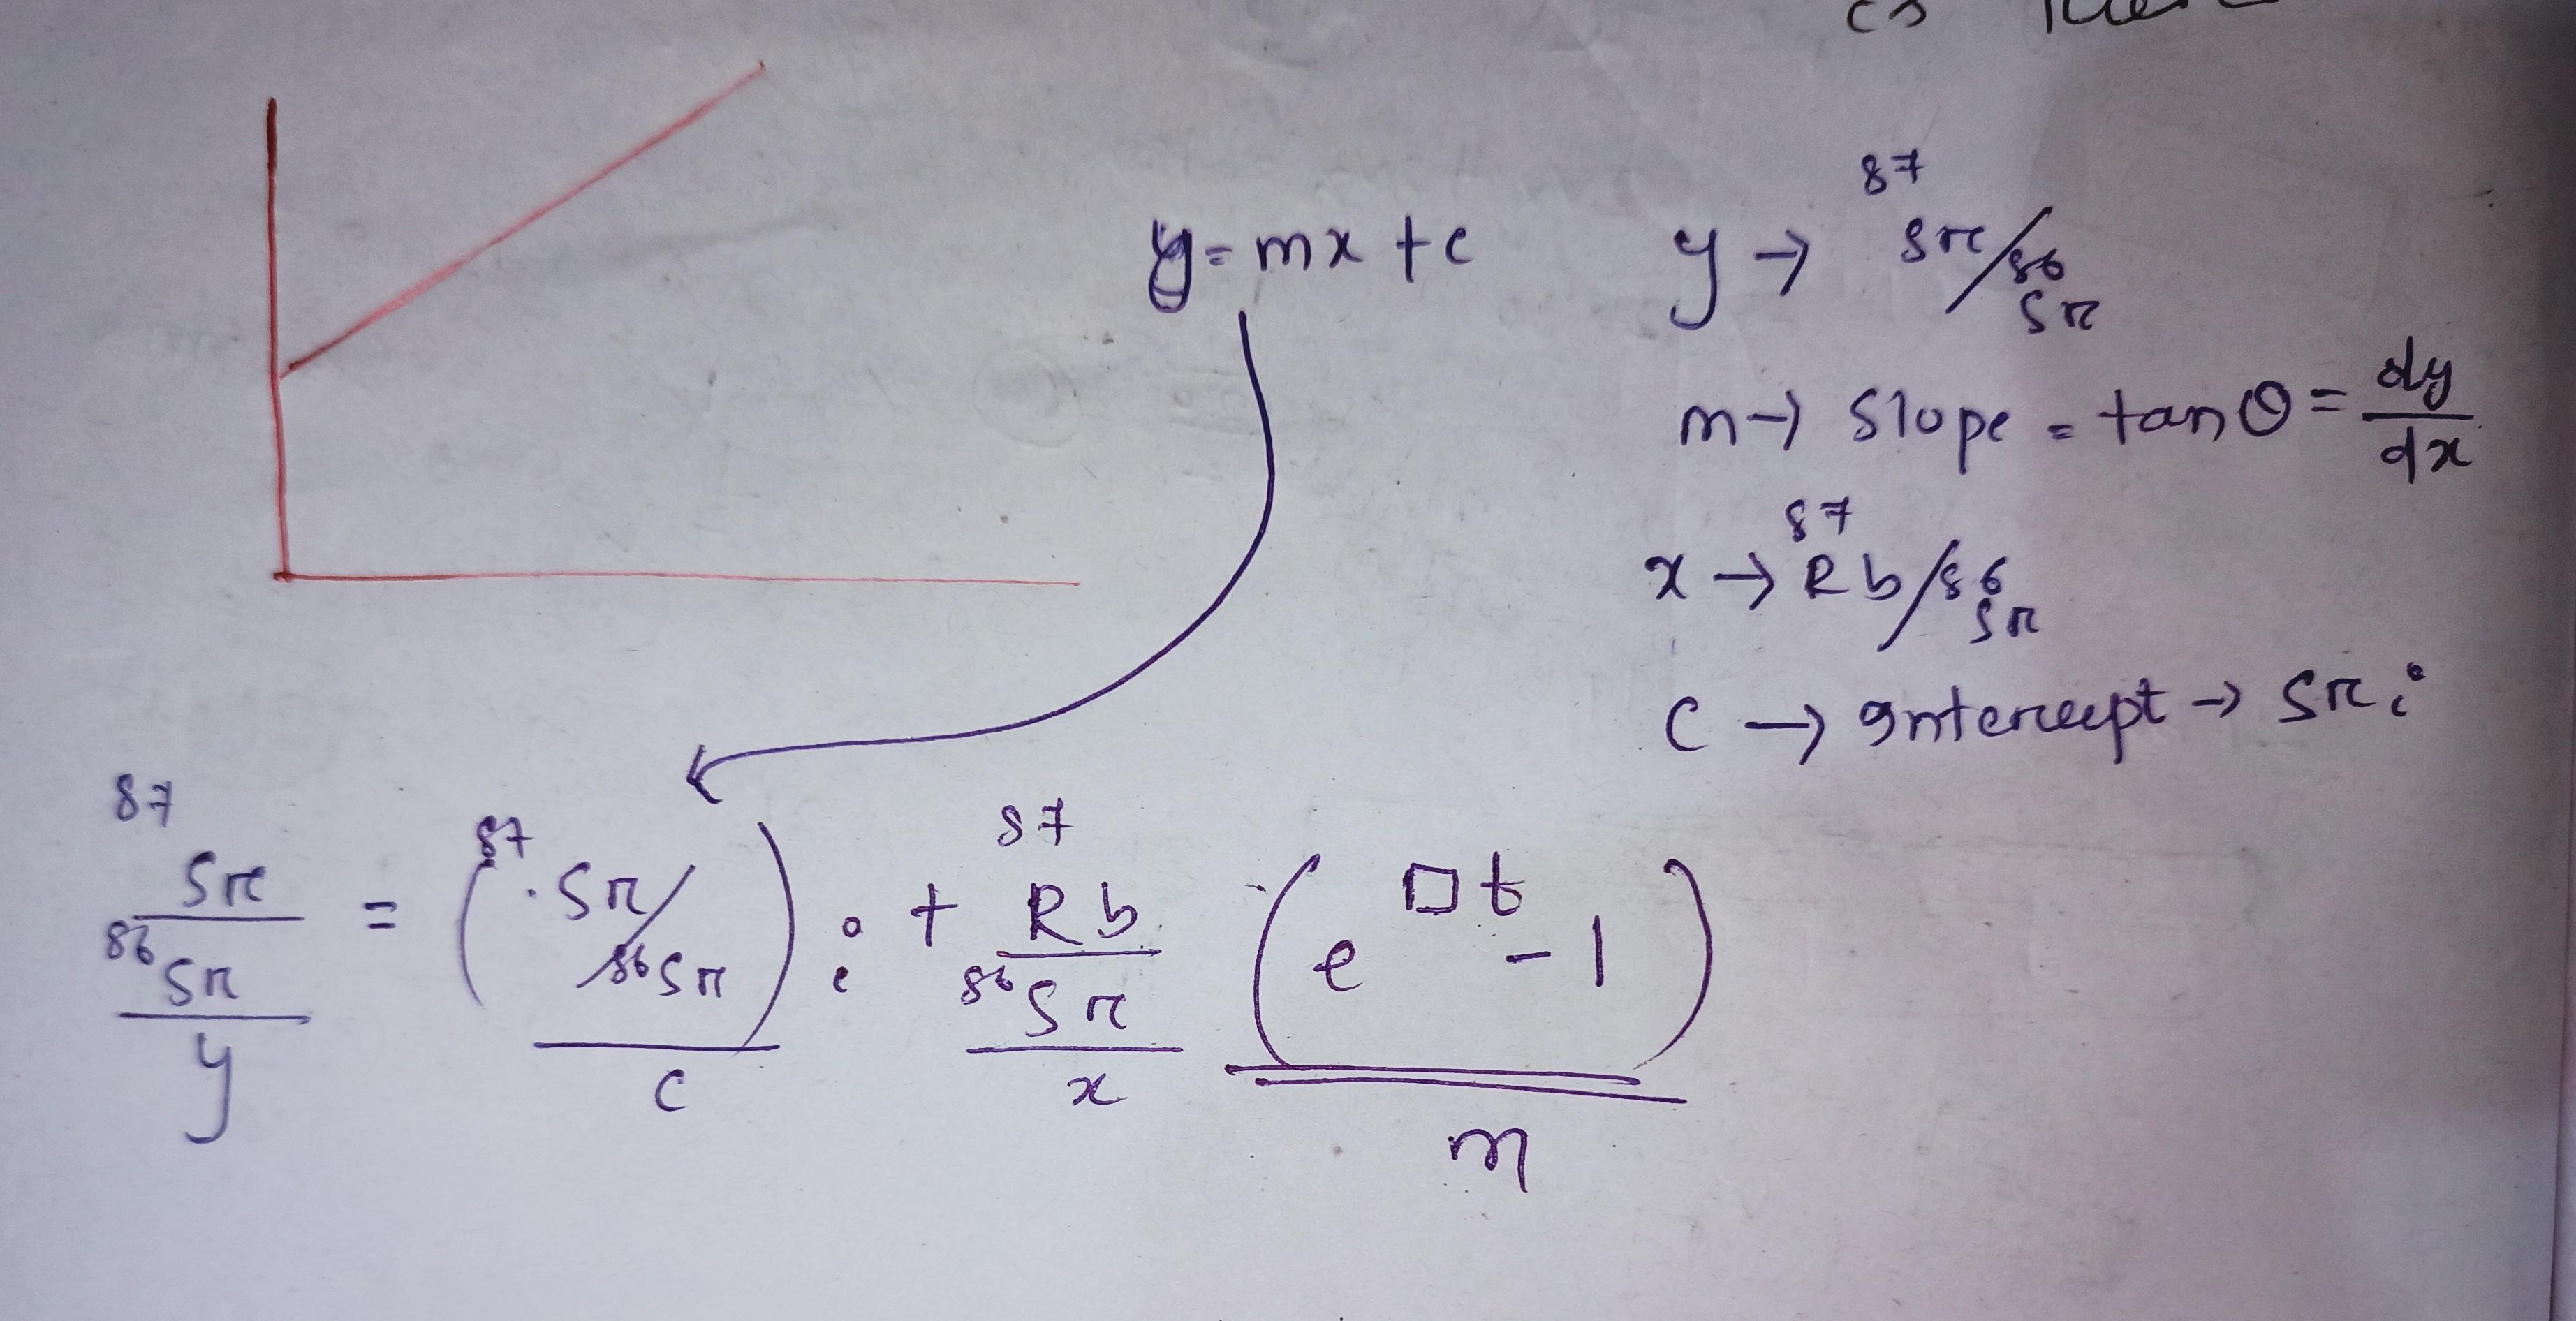 is
y = mx + c
y → 87Sr/86Sr
m → Slope = tan θ = dy/dx
x → 87Rb/86Sr
c → Intercept → Sri
87Sr/86Sr = (87Sr/86Sr)i + 87Rb/86Sr (e^□t - 1)
y c x m